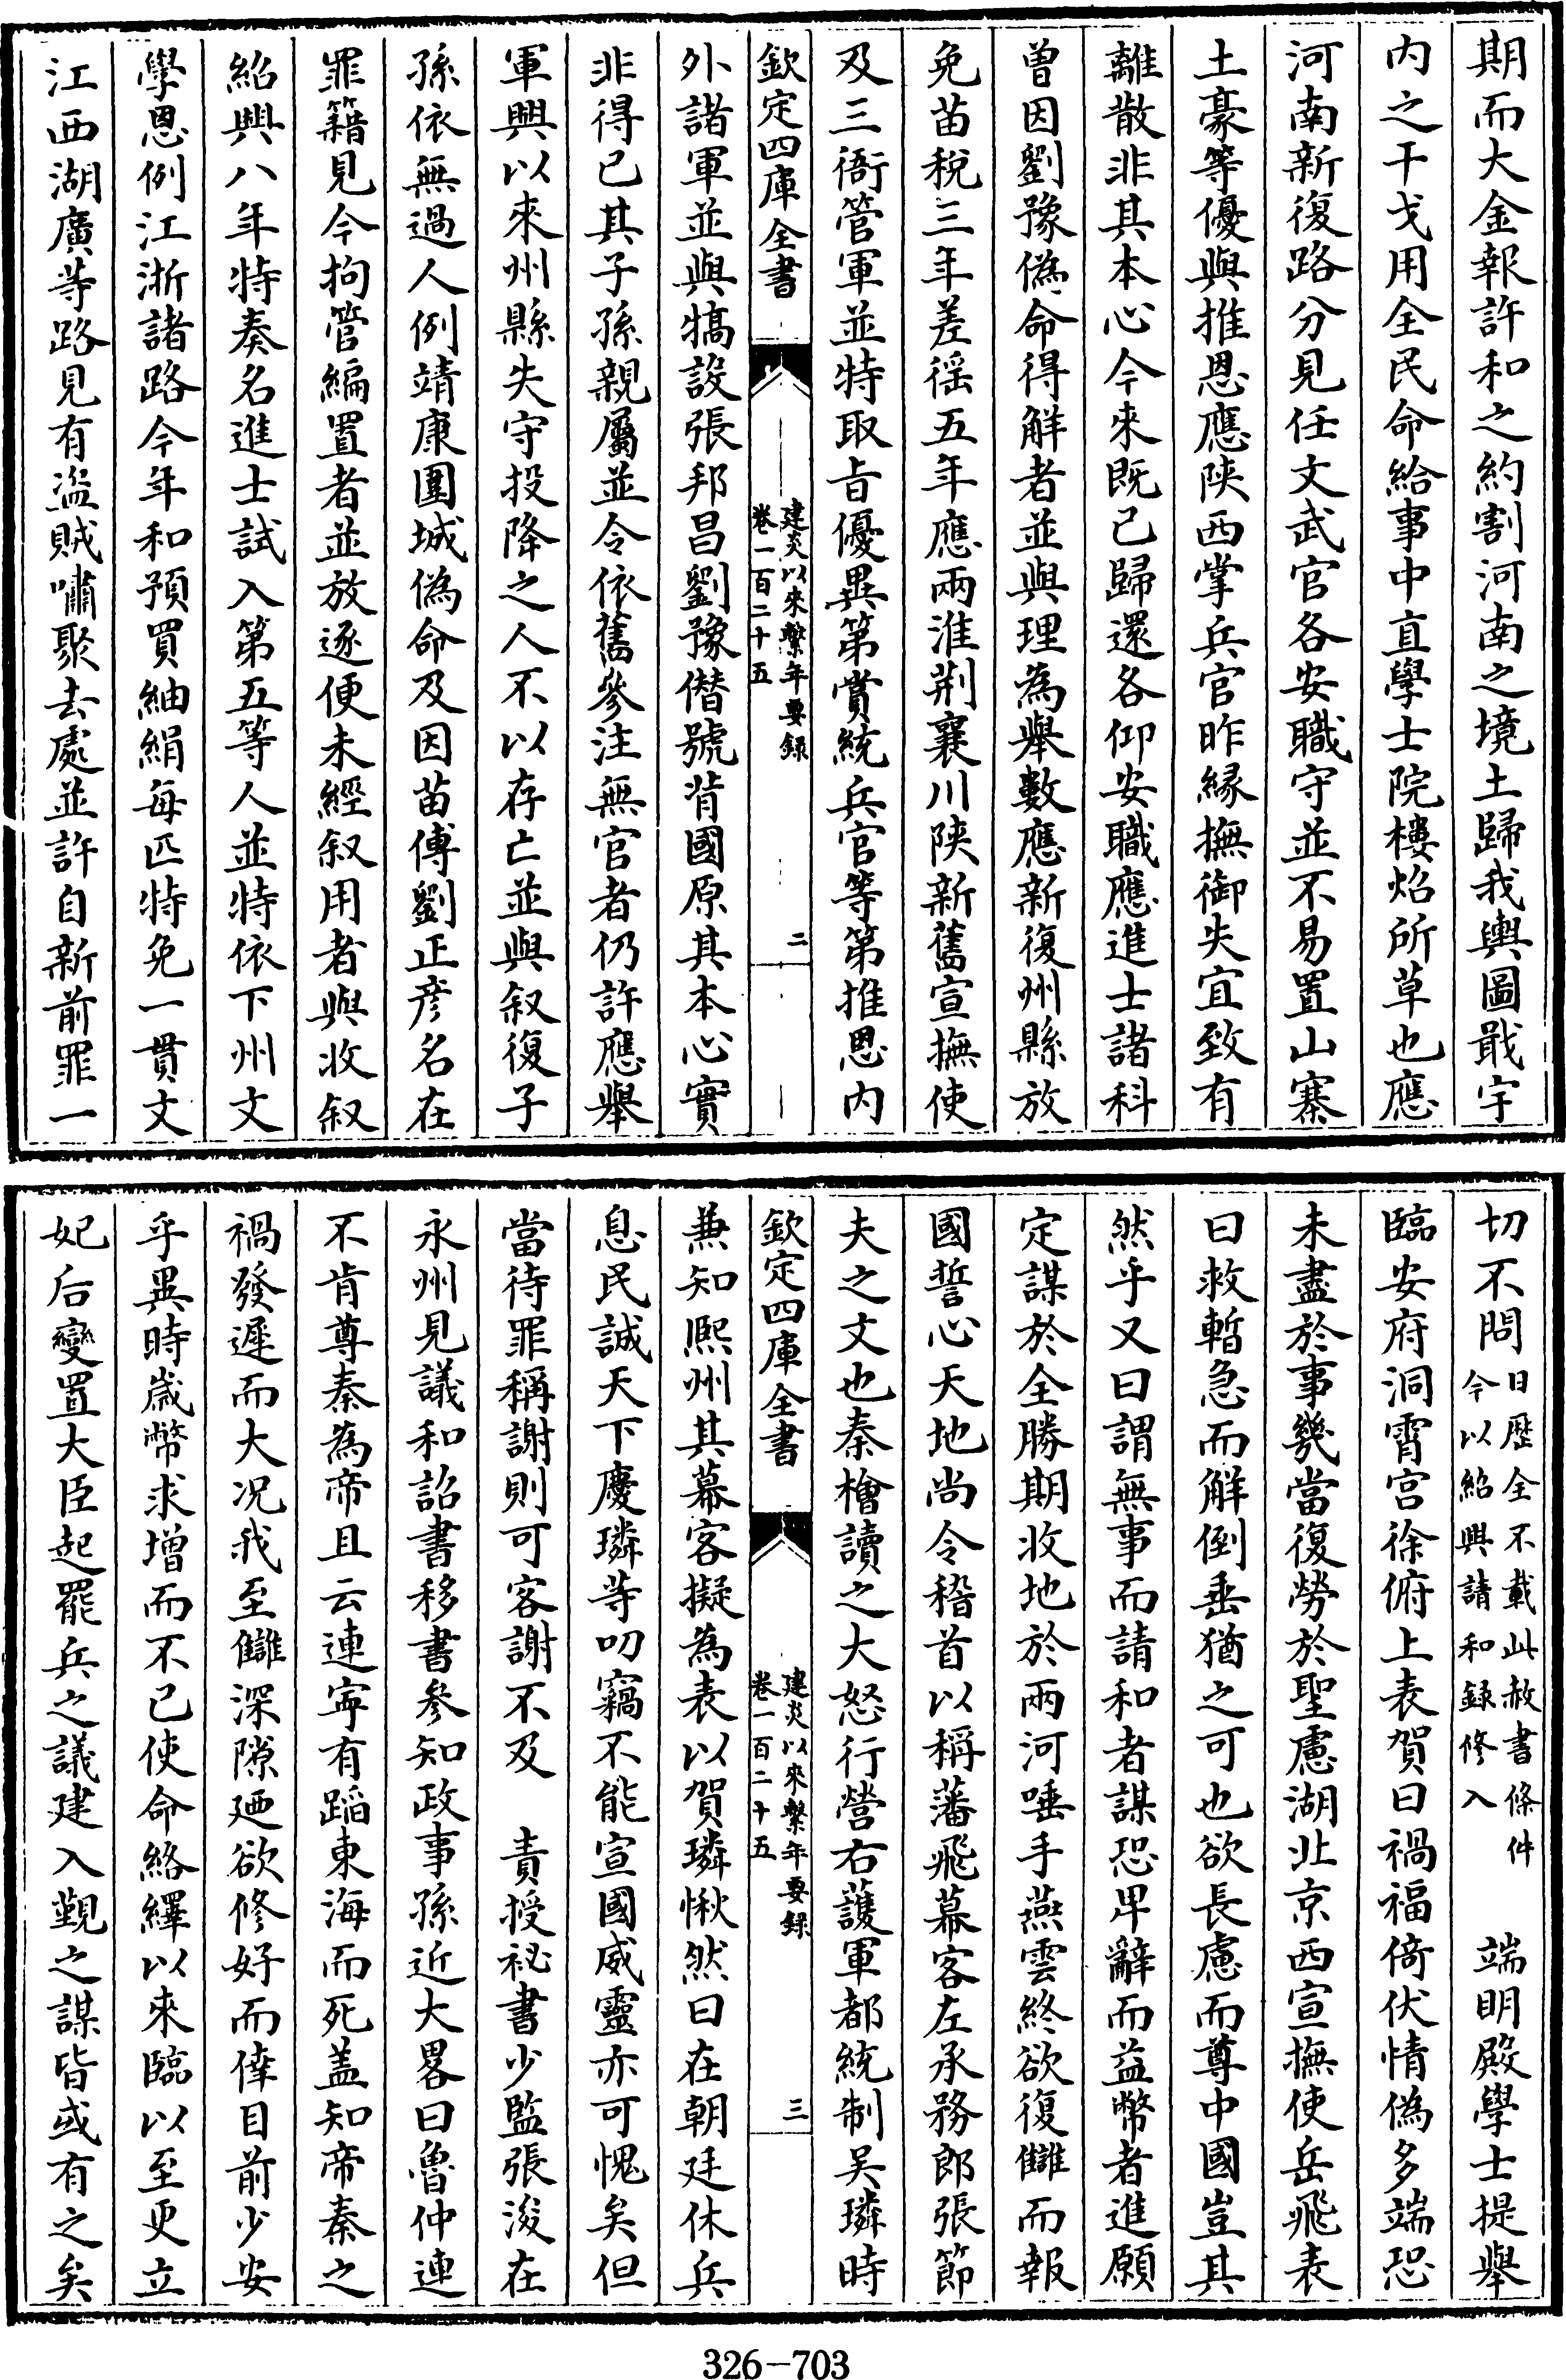 期而大金報許和之約割河南之境土歸我輿圖戢宇
内之干戈用全民命給事中直學士院樓炤所草也應
河南新復路分見任文武官各安職守並不易置山寨
土豪等優與推恩應陜西掌兵官昨緣撫御失宜致有
離散非其本心今來既已歸還各仰安職應進士諸科
曽因劉豫偽命得解者並與理為舉數應新復州縣放
免苗稅三年差徭五年應兩淮荆襄川陜新舊宣撫使
及三衙管軍並特取旨優異第賞統兵官等第推恩内
欽定四庫全書
建炎以來繫年要録
卷一百二十五
二
外諸軍並與犒設張邦昌劉豫僭號背國原其本心實
非得已其子孫親屬並令依舊參注無官者仍許應舉
軍興以來州縣失守投降之人不以存亡並與叙復子
孫依無過人例靖康圍城偽命及因苗傅劉正彦名在
罪籍見今拘管編置者並放逐便未經叙用者與收叙
紹興八年特奏名進士試入第五等人並特依下州文
學恩例江浙諸路今年和預買紬絹每匹特免一貫文
江西湖廣等路見有盗賊嘯聚去處並許自新前罪一
切不問日歴全不載此赦書條件
今以紹興請和録修入
端明殿學士提舉
臨安府洞霄宫徐俯上表賀曰禍福倚伏情偽多端恐
未盡於事幾當復勞於聖慮湖北京西宣撫使岳飛表
曰救暫急而解倒垂猶之可也欲長慮而尊中國豈其
然乎又曰謂無事而請和者謀恐卑辭而益幣者進願
定謀於全勝期收地於兩河唾手燕雲終欲復讎而報
國誓心天地尚令稽首以稱藩飛幕客左承務郎張節
夫之文也秦檜讀之大怒行營右護軍都統制吴璘時
欽定四庫全書
建炎以來繫年要録
卷一百二十五
三
兼知熙州其幕客擬為表以賀璘愀然曰在朝廷休兵
息民誠天下慶璘等叨竊不能宣國威靈亦可愧矣但
當待罪稱謝則可客謝不及
責授祕書少監張浚在
永州見議和詔書移書參知政事孫近大畧曰魯仲連
不肯尊秦為帝且云連寧有蹈東海而死盖知帝秦之
禍發遲而大况我至讎深隙廼欲修好而倖目前少安
乎異時嵗幣求增而不已使命絡繹以來臨以至更立
妃后變置大臣起罷兵之議建入觐之謀皆或有之矣
326-703